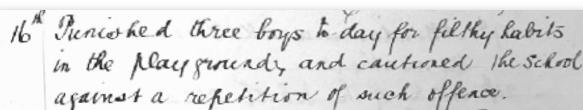 16th Punished three boys to day for filthy habits
in the play ground, and cautioned the school
against a repetition of such offence.